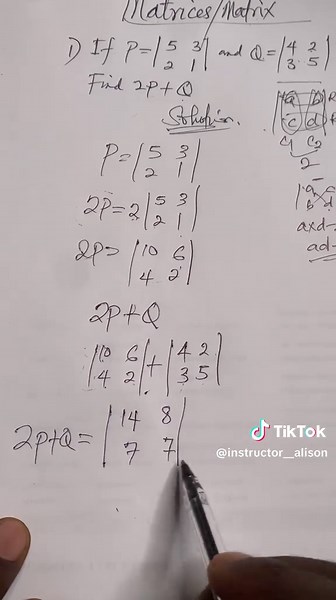 Matrices/Matrix
1) If P = |5 3| and Q = |4 2|
2 1 3 5
Find 2P + Q
Solution.
P = |5 3|
2 1
2P = 2 |5 3|
2 1
2P = |10 6|
4 2
2P + Q
|10 6| + |4 2|
4 2 3 5
2P+Q = |14 8|
7 7
a b
c d
C1 C2
2
a c
b d
axd-
ad-
TikTok
@instructor__alison